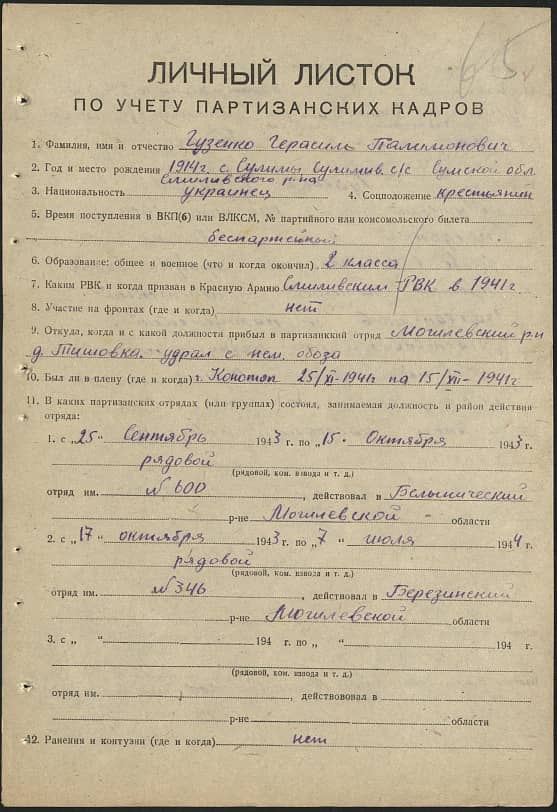 65
ЛИЧНЫЙ ЛИСТОК
ПО УЧЕТУ ПАРТИЗАНСКИХ КАДРОВ
1. Фамилия, имя и отчество Гузенко Герасим
2. Год и место рождения 1914 г. с. Сулимы Сулимив. с/с Сумской обл.
Смиливского р-на
3. Национальность украинец 4. Соцположение крестьянин
5. Время поступления в ВКП(б) или ВЛКСМ, № партийного или комсомольского билета
беспартейный
6. Образование: общее и военное (что и когда окончил) 2 класса
7. Каким РВК и когда призван в Красную Армию Смиливским РВК в 1941 г
8. Участие на фронтах (где и когда) нет
9. Откуда, когда и с какой должности прибыл в партизанский отряд Могилевский р-н
д. Тишовка. удрал с нем. обоза
10. Был ли в плену (где и когда) г. Конотоп 25/XI-1941г по 15/XII-1941г
11. В каких партизанских отрядах (или группах) состоял, занимаемая должность и район действия
отряда:
1. с „25“ Сентябрь 1943 г. по „15“ Октября 1943 г.
рядовой
(рядовой, ком. взвода и т. д.)
отряд им. № 600, действовал в Белынический
р-не Могилевской области
2. с „17“ октября 1943 г. по „7“ июля 1944 г.
рядовой
(рядовой, ком. взвода и т. д.)
отряд им. № 346, действовал в Березинский
р-не Могилевской области
3. с „ “ 194 г. по „ “ 194 г.
(рядовой, ком. взвода и т. д.)
отряд им. , действововал в
р-не области
12. Ранения и контузии (где и когда) нет